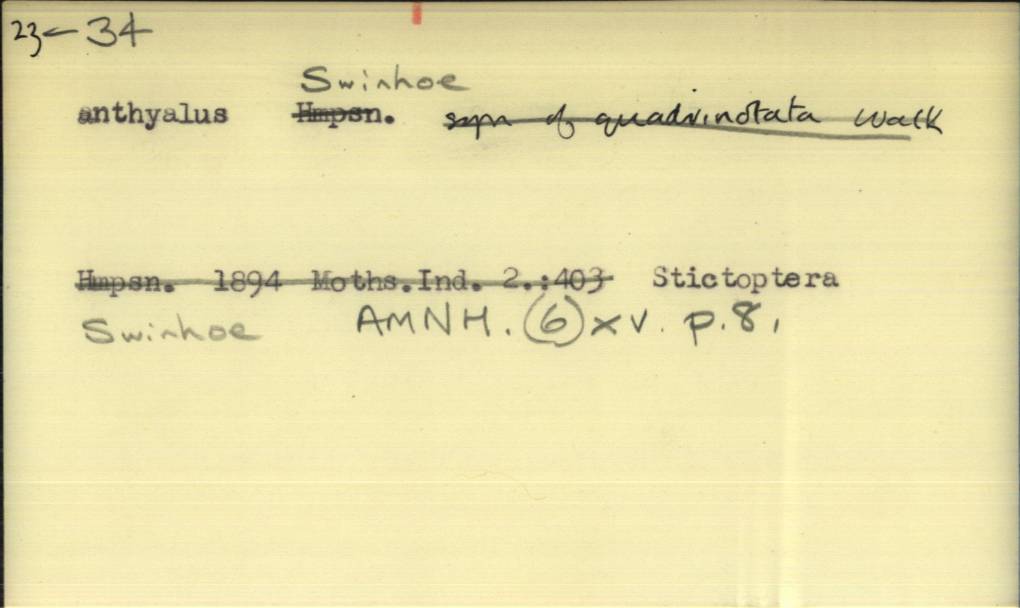 23 - 34
Swinhoe
anthyalus Hmpsn. syn of quadrinotata Walk
Hmpsn. 1894 Moths.Ind. 2.:403 Stictoptera
Swinhoe AMNH. (6) XV. p.8,